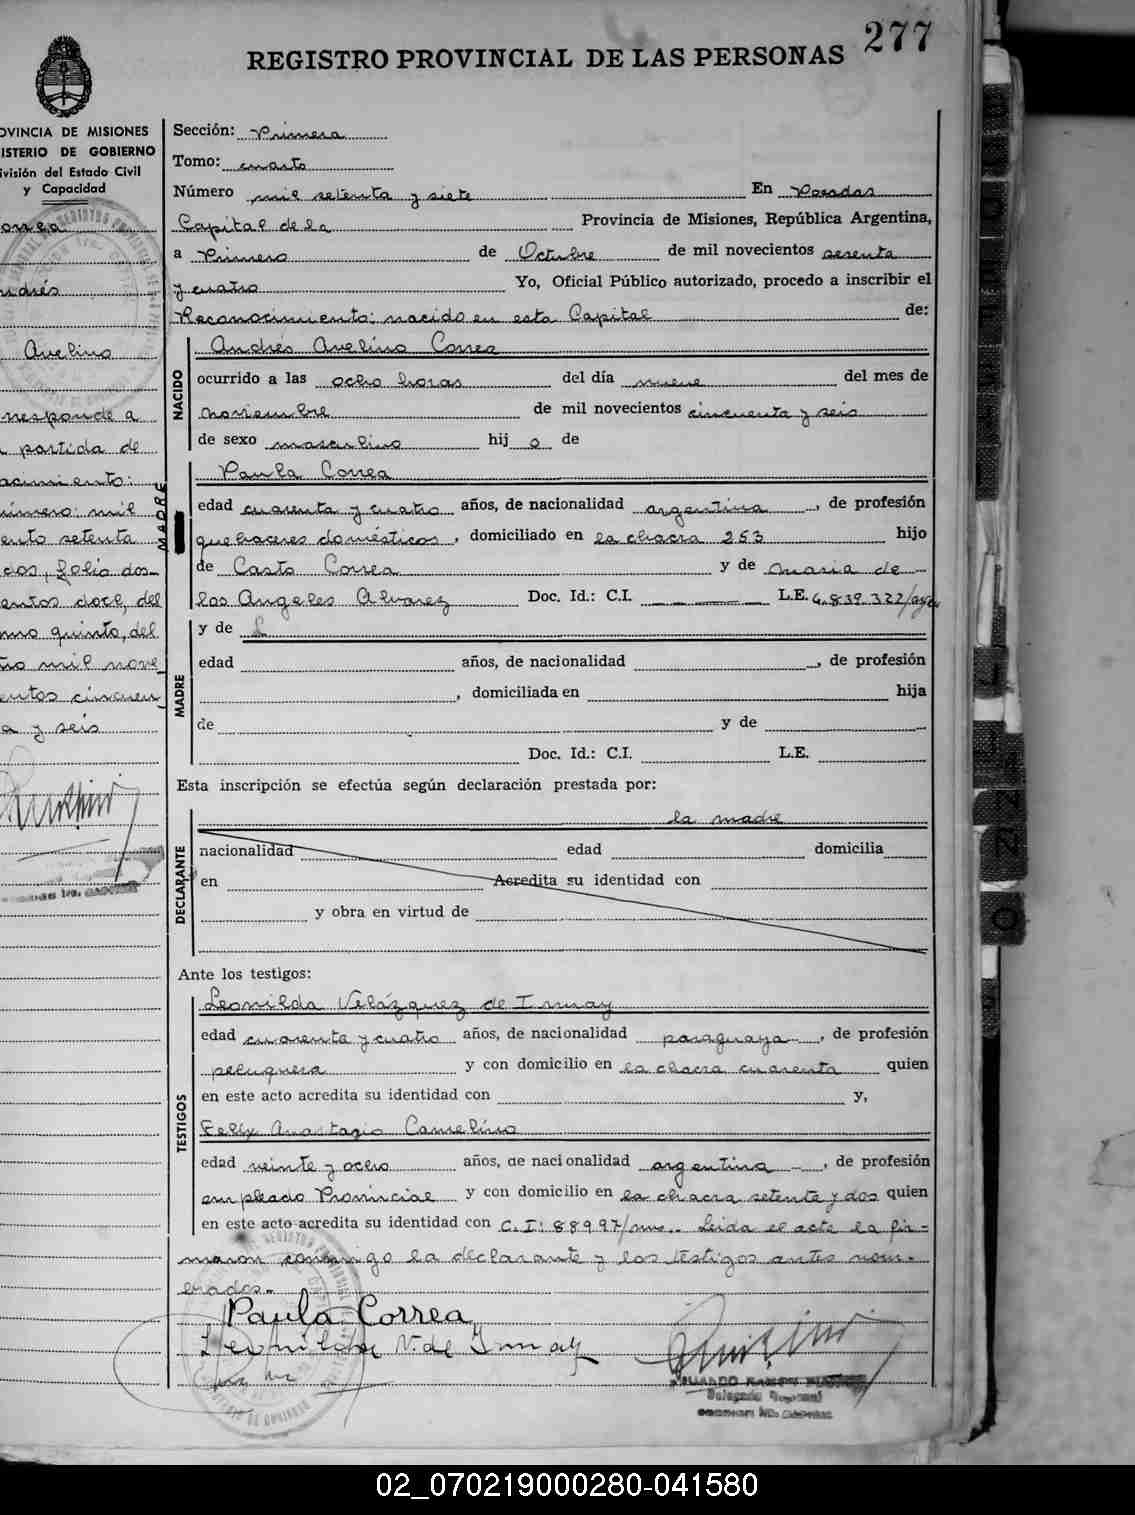 277
REGISTRO PROVINCIAL DE LAS PERSONAS
OVINCIA DE MISIONES
ISTERIO DE GOBIERNO
ivisión del Estado Civil
y Capacidad
orrea
ndrés
Avelino
rresponde a
a partida de
acimiento:
úmero: mil
ento setenta
dos, folio dos-
entos doce, del
omo quinto, del
ño mil nove
entos cincuen
a y seis
Sección: Primera
Tomo: cuarto
Número mil setenta y siete En Posadas
Capital de la Provincia de Misiones, República Argentina,
a Primero de Octubre de mil novecientos sesenta
y cuatro Yo, Oficial Público autorizado, procedo a inscribir el
Reconocimiento: nacido en esta Capital de:
NACIDO
Andrés Avelino Correa
ocurrido a las ocho horas del día nueve del mes de
noviembre de mil novecientos cincuenta y seis
de sexo masculino hij o de
MADRE
Paula Correa
edad cuarenta y cuatro años, de nacionalidad argentina, de profesión
quehaceres domésticos, domiciliado en la chacra 253 hijo
de Casto Correa y de María de
los Angeles Alvarez Doc. Id.: C.I. L.E. 4.839.322/
y de
MADRE
edad años, de nacionalidad , de profesión
, domiciliada en hija
de y de
Doc. Id.: C.I. L.E.
Esta inscripción se efectúa según declaración prestada por:
la madre
DECLARANTE
nacionalidad edad domicilia
en Acredita su identidad con
y obra en virtud de
Ante los testigos:
TESTIGOS
Leonilda Velázquez de Irmay
edad cuarenta y cuatro años, de nacionalidad paraguaya, de profesión
peluquera y con domicilio en la chacra cuarenta quien
en este acto acredita su identidad con y,
Felix Anastazio Camelino
edad veinte y ocho años, de nacionalidad argentina, de profesión
empleado Provincial y con domicilio en la chacra setenta y dos quien
en este acto acredita su identidad con C.I: 88997/mnes.. Leida el acta la fir-
maron conmigo la declarante y los testigos antes nom-
brados.-
Paula Correa
Leonilda V. de Irmay
02_070219000280-041580